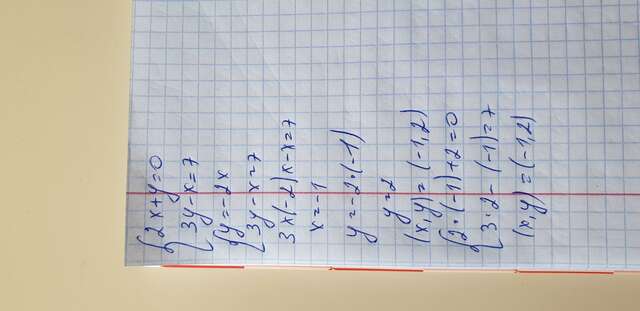 {2x+y=0
3y-x=7
{y=-2x
3y-x=7
3x(-2)x-x=7
x=-1
y=-2·(-1)
y=2
(x,y)=(-1,2)
{2·(-1)+2=0
3·2-(-1)=7
(x,y)=(-1,2)